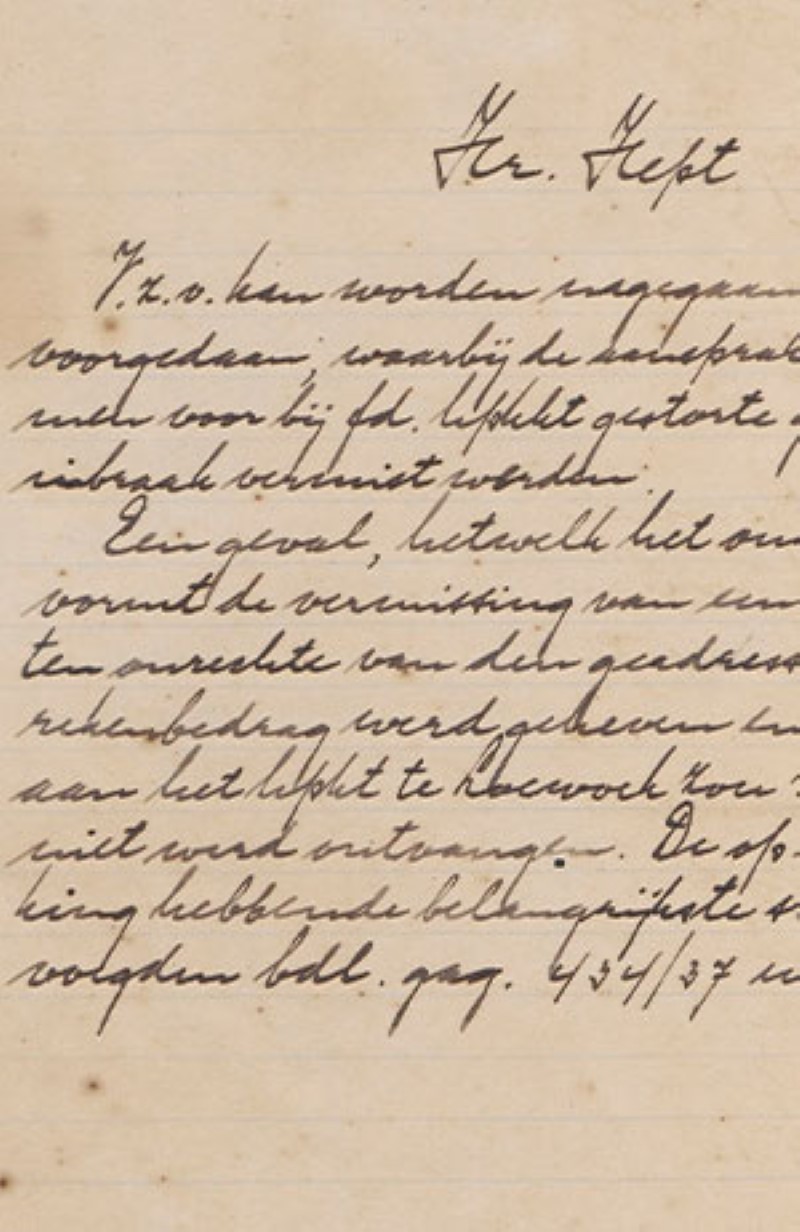 Hr. Hept
V.z.v. kan worden nagegaan
voorgedaan, waarbij de aansprak
men voor bij fd. hpkkt gestorte g
inbraak vermist werden.
Een geval, hetwelk het on
vormt de vermissing van een
ten onrechte van den geadress
rekenbedrag werd geheven en
aan het hpkt te zou
niet werd ontvangen. De op-
king hebbende belangrijkste s
voegden bdl. gag. 434/37